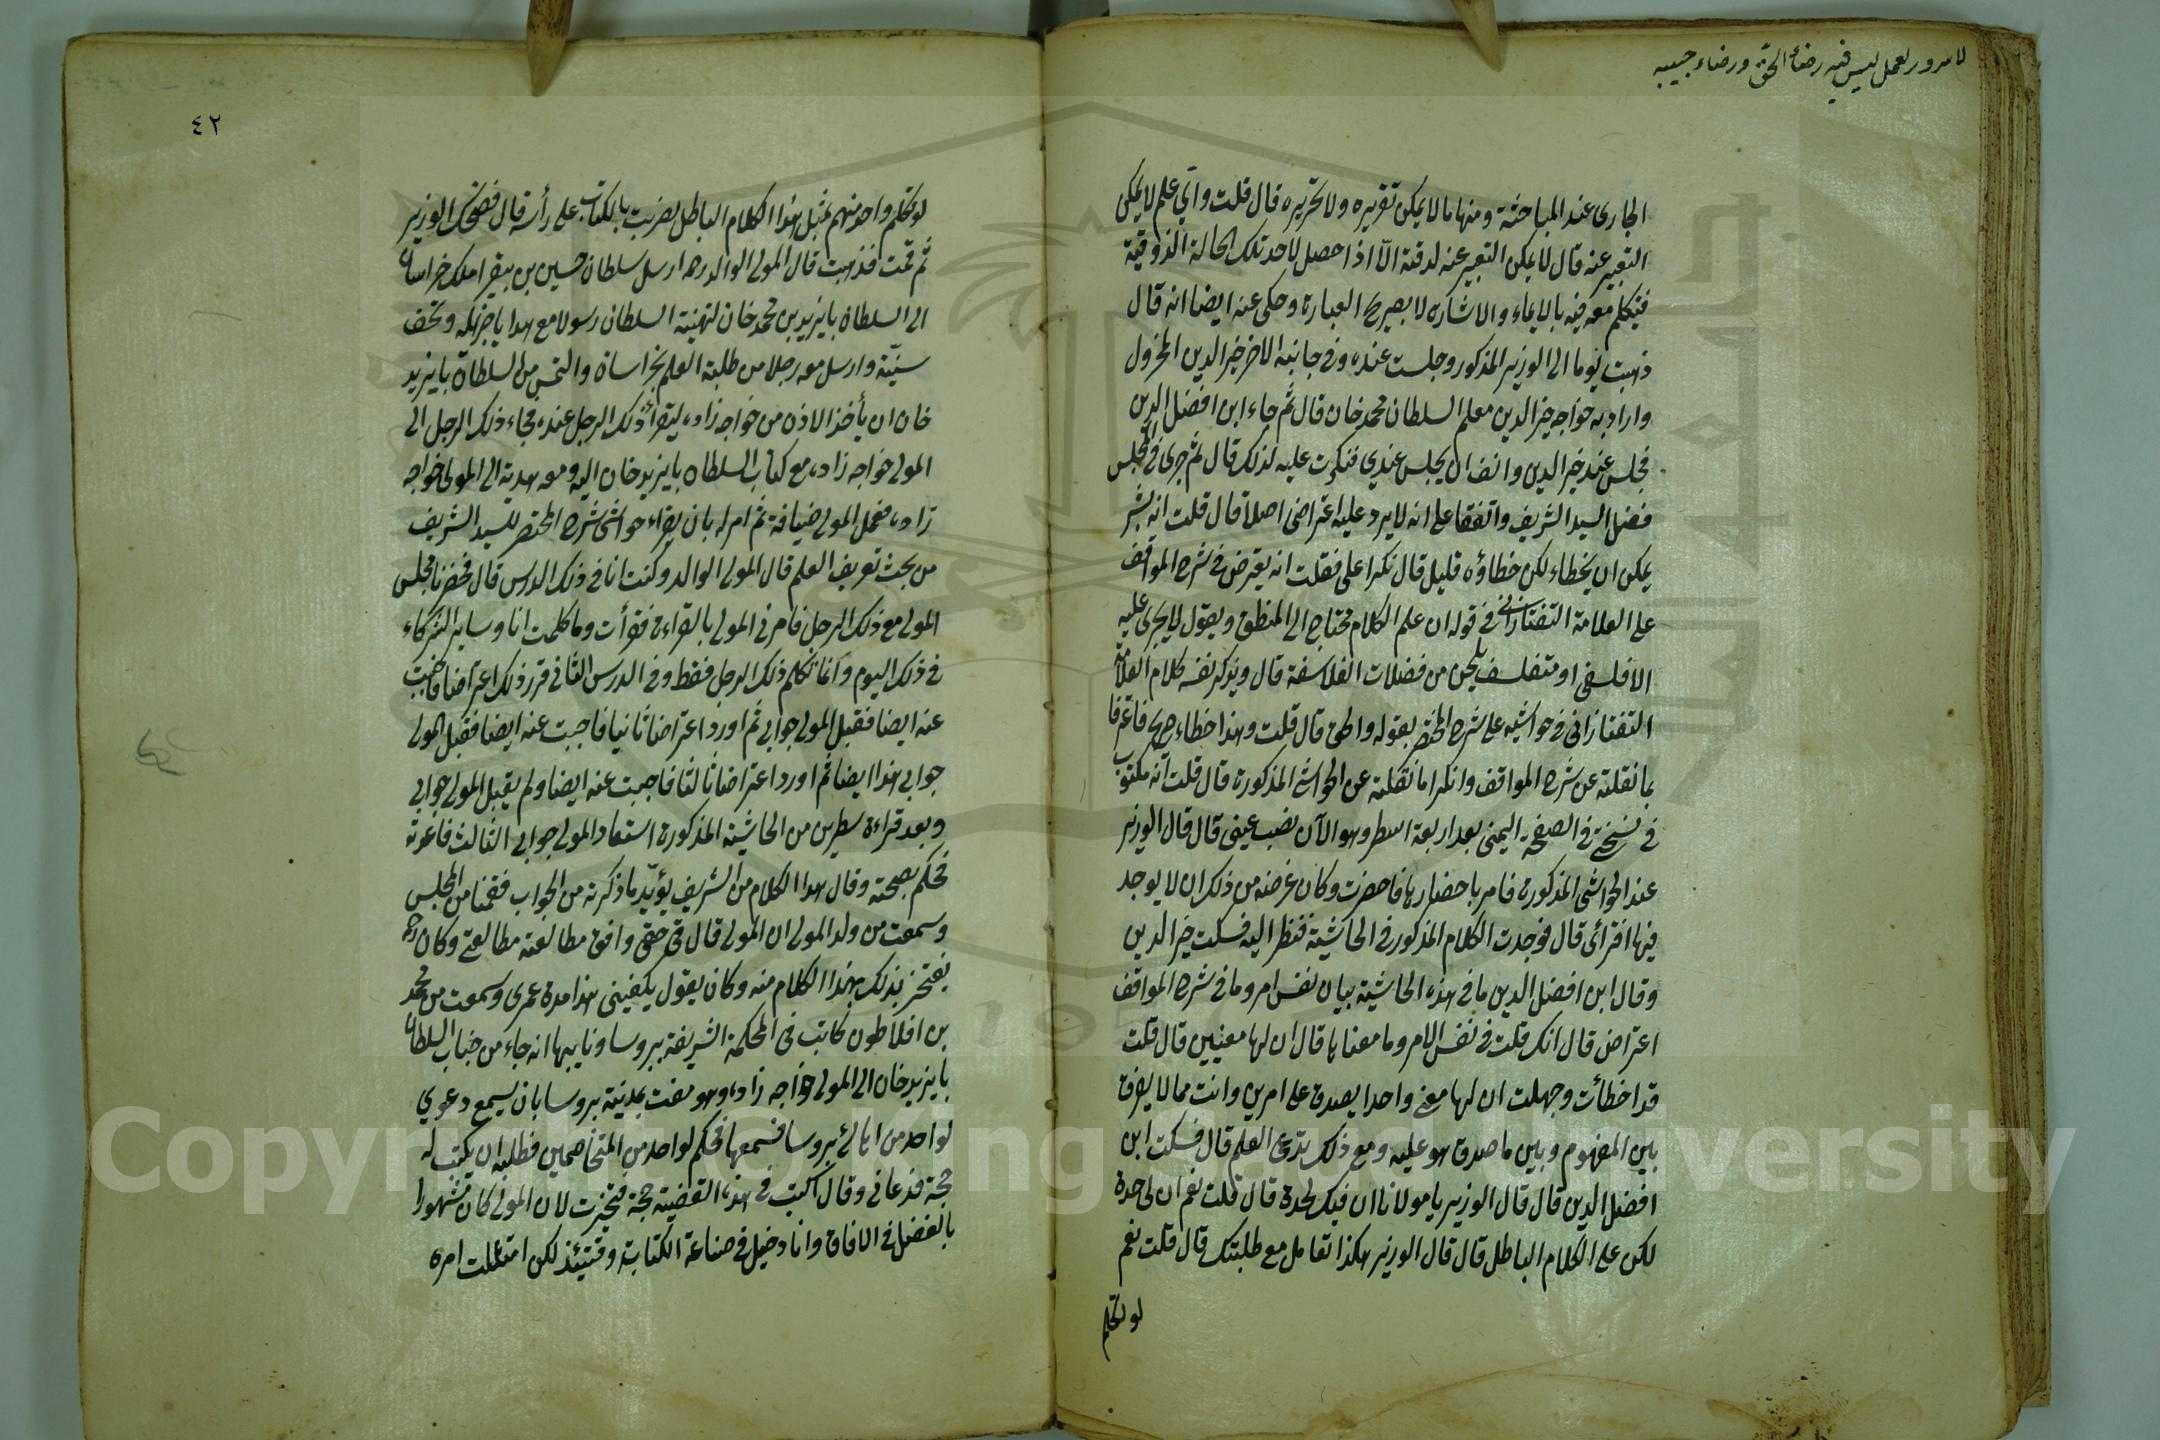 لا سرور لعمل ليس فيه رضاء الحق ورضاء حبيبه
الجارى عند المباحثة ومنها ما لا يمكن تقريره ولا تحريره قال قلت واي علم لا يمكن
التعبير عنه قال لا يمكن التعبير عنه لدقته الا اذا حصل لاحد تلك الحالة الذوقية
فيتكلم معه فيه بالايماء والاشارة لا بصريح العبارة وحكى عنه ايضا انه قال
ذهبت يوما الى الوزير المذكور وجلست عنده وفى جانبه الاخر خير الدين المعزول
واراد به خواجه خير الدين معلم السلطان محمد خان قال ثم جاء ابن افضل الدين
فجلس عند خير الدين وانف ان يجلس عندي فنكرت عليه لذلك قال ثم جرى فى المجلس
فضل السيد الشريف واتفقا على انه لا يرد عليه اعتراض اصلا قال قلت انه بشر
يمكن ان يخطاء لكن خطاؤه قليل قال نكرا على فقلت انه يعترض فى شرح المواقف
على العلامة التفتازانى فى قوله ان علم الكلام محتاج الى المنطق ويقول لا يجرى عليه
الا فلسفى او متفلسف يلحس من فضلات الفلاسفة قال ويذكر نفسه كلام العلامة
التفتازانى فى حواشيه على شرح المختصر بقوله والحق قال قلت وهذا خطاء صريح فاعترفا
بما نقلته عن شرح المواقف وانكرا ما نقلته عن الحواشى المذكورة قال قلت انه مكتوب
فى نسختى فى الصفحة اليمنى بعد اربعة اسطر وهو الآن نصب عينى قال قال الوزير
عند الحواشى المذكورة فامر باحضارها فاحضرت وكان غرضه من ذلك ان لا يوجد
فيها افترائى قال فوجدت الكلام المذكور فى الحاشية فنظر اليه فسكت خير الدين
وقال ابن افضل الدين ما فى هذه الحاشية بيان نفس امر وما فى شرح المواقف
اعتراض قال انك قلت فى نفس الامر وما معناها قال ان لها معنيين قال قلت
قد اخطأت وجهلت ان لها معنى واحدا يصدق على امرين وانت مما لا يفرق
بين المفهوم وبين ما صدق هو عليه ومع ذلك تدعى العلم قال فسكت ابن
افضل الدين قال قال الوزير يا مولانا ان فيك لحدة قال قلت نعم ان لى حدة
لكن على الكلام الباطل قال قال الوزير هكذا تعامل مع طلبتك قال قلت نعم
لو تكلم
٤٢
لو تكلم واحد منهم بمثل هذا الكلام الباطل لضربت بالكتاب على رأسه قال فضحك الوزير
ثم قمت فذهبت قال المولى الوالد رحه ارسل سلطان حسين بن بيقرا ملك خراسان
الى السلطان بايزيد بن محمد خان لتهنية السلطان رسولا مع هدايا جزيلة وتحف
سنية وارسل معه رجلا من طلبة العلم بخراسان والتمس من السلطان بايزيد
خان ان يأخذ الاذن من خواجه زاده ليقرأ ذلك الرجل عنده فجاء ذلك الرجل الى
المولى خواجه زاده مع كتاب السلطان بايزيد خان اليه ومعه هدية الى المولى خواجه
زاده فعمل المولى ضيافة ثم امر له بان يقراء حواشى شرح المختصر للسيد الشريف
من بحث تعريف العلم قال المولى الوالد وكنت انا فى ذلك الدرس قال فحضرنا مجلس
المولى مع ذلك الرجل فامرنى المولى بالقراءة فقرأت وما تكلمت انا وساير الشركاء
فى ذلك اليوم وانما تكلم ذلك الرجل فقط وفى الدرس الثانى قرر ذلك اعتراضا فاجبت
عنه ايضا فقبل المولى جوابى ثم اورد اعتراضا ثانيا فاجبت عنه ايضا فقبل المولى
جوابى هذا ايضا ثم اورد اعتراضا ثالثا فاجبت عنه ايضا ولم يقبل المولى جوابى
وبعد قراءة سطرين من الحاشية المذكورة استعاد المولى جوابى الثالث فاعدته
فحكم بصحته وقال هذا الكلام من الشريف يؤيد ما ذكرته من الجواب فقمنا من المجلس
وسمعت من ولد المولى ان المولى قال فى حقى وافق مطالعته مطالعتى وكان رحه
يفتخر بذلك بهذا الكلام منه وكان يقول يكفينى هذا مدة عمرى وسمعت من محمد
بن افلاطون كاتب فى المحكمة الشريفة ببروسا ونايبها انه جاء من جناب السلطان
بايزيد خان الى المولى خواجه زاده وهو مفت بمدينة بروسا بان يسمع دعوي
لواحد من اهالى بروسا فسمعها فحكم لواحد من المتخاصمين فطلب ان يكتب له
حجة فدعانى وقال اكتب فى هذه القضية حجة فتحيرت لان المولى كان مشهورا
بالفضل فى الافاق وانا دخيل فى صناعة الكتابة وقتئذ لكن امتثلت امره